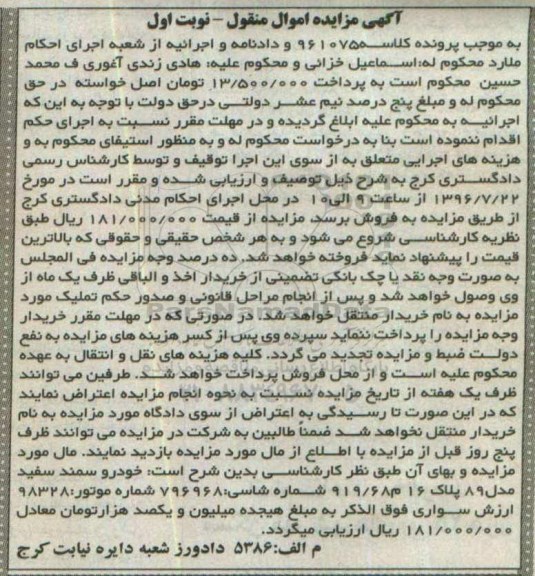 آگهی مزایده اموال منقول – نوبت اول
به موجب پرونده کلاسه ۹۶۱۰۷۵ و دادنامه و اجرائیه از شعبه اجرای احکام
ملارد محکوم له: اسماعیل خزائی و محکوم علیه: هادی زندی آغوری ف محمد
حسین محکوم است به پرداخت ۱۳/۵۰۰/۰۰۰ تومان اصل خواسته در حق
محکوم له و مبلغ پنج درصد نیم عشر دولتی درحق دولت با توجه به این که
اجرائیه به محکوم علیه ابلاغ گردیده و در مهلت مقرر نسبت به اجرای حکم
اقدام ننموده است بنا به درخواست محکوم له و به منظور استیفای محکوم به و
هزینه های اجرایی متعلق به از سوی این اجرا توقیف و توسط کارشناس رسمی
دادگستری کرج به شرح ذیل توصیف و ارزیابی شده و مقرر است در مورخ
۱۳۹۶/۷/۲۲ از ساعت ۹ الی۱۰ در محل اجرای احکام مدنی دادگستری کرج
از طریق مزایده به فروش برسد. مزایده از قیمت ۱۸۱/۰۰۰/۰۰۰ ریال طبق
نظریه کارشناسی شروع می شود و به هر شخص حقیقی و حقوقی که بالاترین
قیمت را پیشنهاد نماید فروخته خواهد شد. ده درصد وجه مزایده فی المجلس
به صورت وجه نقد یا چک بانکی تضمینی از خریدار اخذ و الباقی ظرف یک ماه از
وی وصول خواهد شد و پس از انجام مراحل قانونی و صدور حکم تملیک مورد
مزایده به نام خریدار منتقل خواهد شد. در صورتی که در مهلت مقرر خریدار
وجه مزایده را پرداخت ننماید سپرده وی پس از کسر هزینه های مزایده به نفع
دولت ضبط و مزایده تجدید می گردد. کلیه هزینه های نقل و انتقال به عهده
محکوم علیه است و از محل فروش پرداخت خواهد شد. طرفین می توانند
ظرف یک هفته از تاریخ مزایده نسبت به نحوه انجام مزایده اعتراض نمایند
که در این صورت تا رسیدگی به اعتراض از سوی دادگاه مورد مزایده به نام
خریدار منتقل نخواهد شد ضمناً طالبین به شرکت در مزایده می توانند ظرف
پنج روز قبل از مزایده با اطلاع از مال مورد مزایده بازدید نمایند. مال مورد
مزایده و بهای آن طبق نظر کارشناسی بدین شرح است: خودرو سمند سفید
مدل۸۹ پلاک ۱۶ م۹۱۹/۶۸ شماره شاسی:۷۹۶۹۶۸ شماره موتور:۹۸۳۲۸
ارزش سواری فوق الذکر به مبلغ هیجده میلیون و یکصد هزارتومان معادل
۱۸۱/۰۰۰/۰۰۰ ریال ارزیابی میگردد.
م الف:۵۳۸۶ دادورز شعبه دایره نیابت کرج